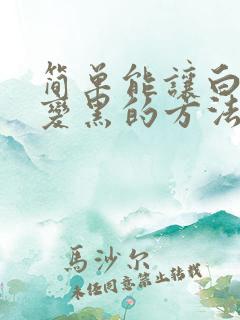 简单能讓白
变黑的方法
馬沙尔
未经同意禁止转载